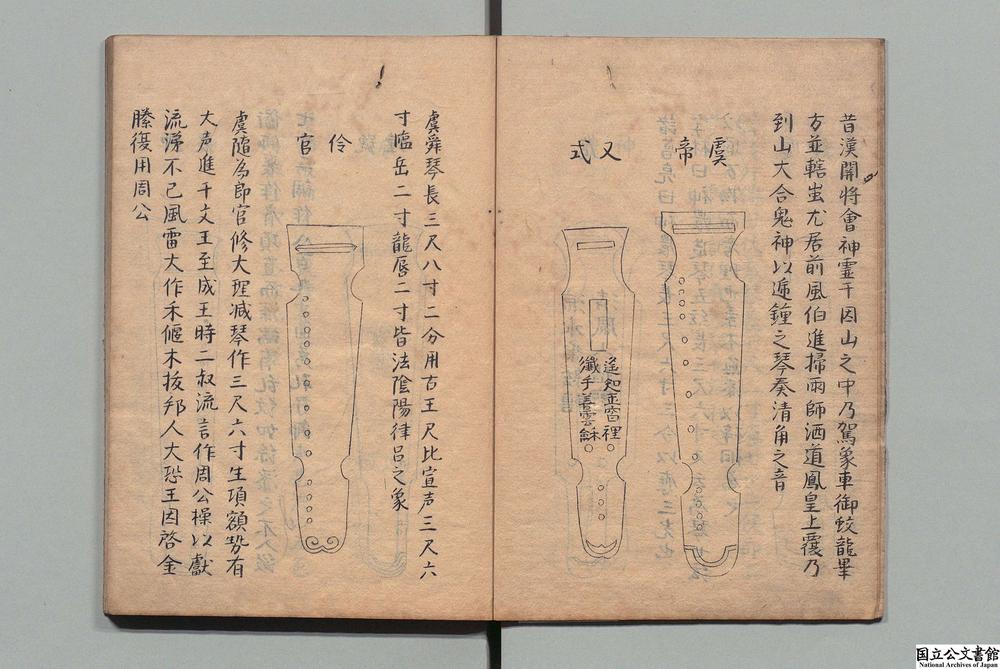 昔漢開將會神霊于因山之中乃駕象車御蛟龍畢
方並轄蚩尤居前風伯進掃雨師洒道鳳皇上覆乃
到山大合鬼神以遞鐘之琴奏清角之音
虞帝
又式
遥知並窓裡
纖手弄雲龢
虞舜琴長三尺八寸二分用古王尺比宣声三尺六
寸臨岳二寸龍唇二寸皆法陰陽律吕之象
伶官
虞隨為即官修大理減琴作三尺六寸生項額勢有
大声進千文王至成王時二叔流言作周公操以獻
流涕不已風雷大作禾偃木抜邦人大恐王因啓金
縢復用周公
国立公文書館
National Archives of Japan